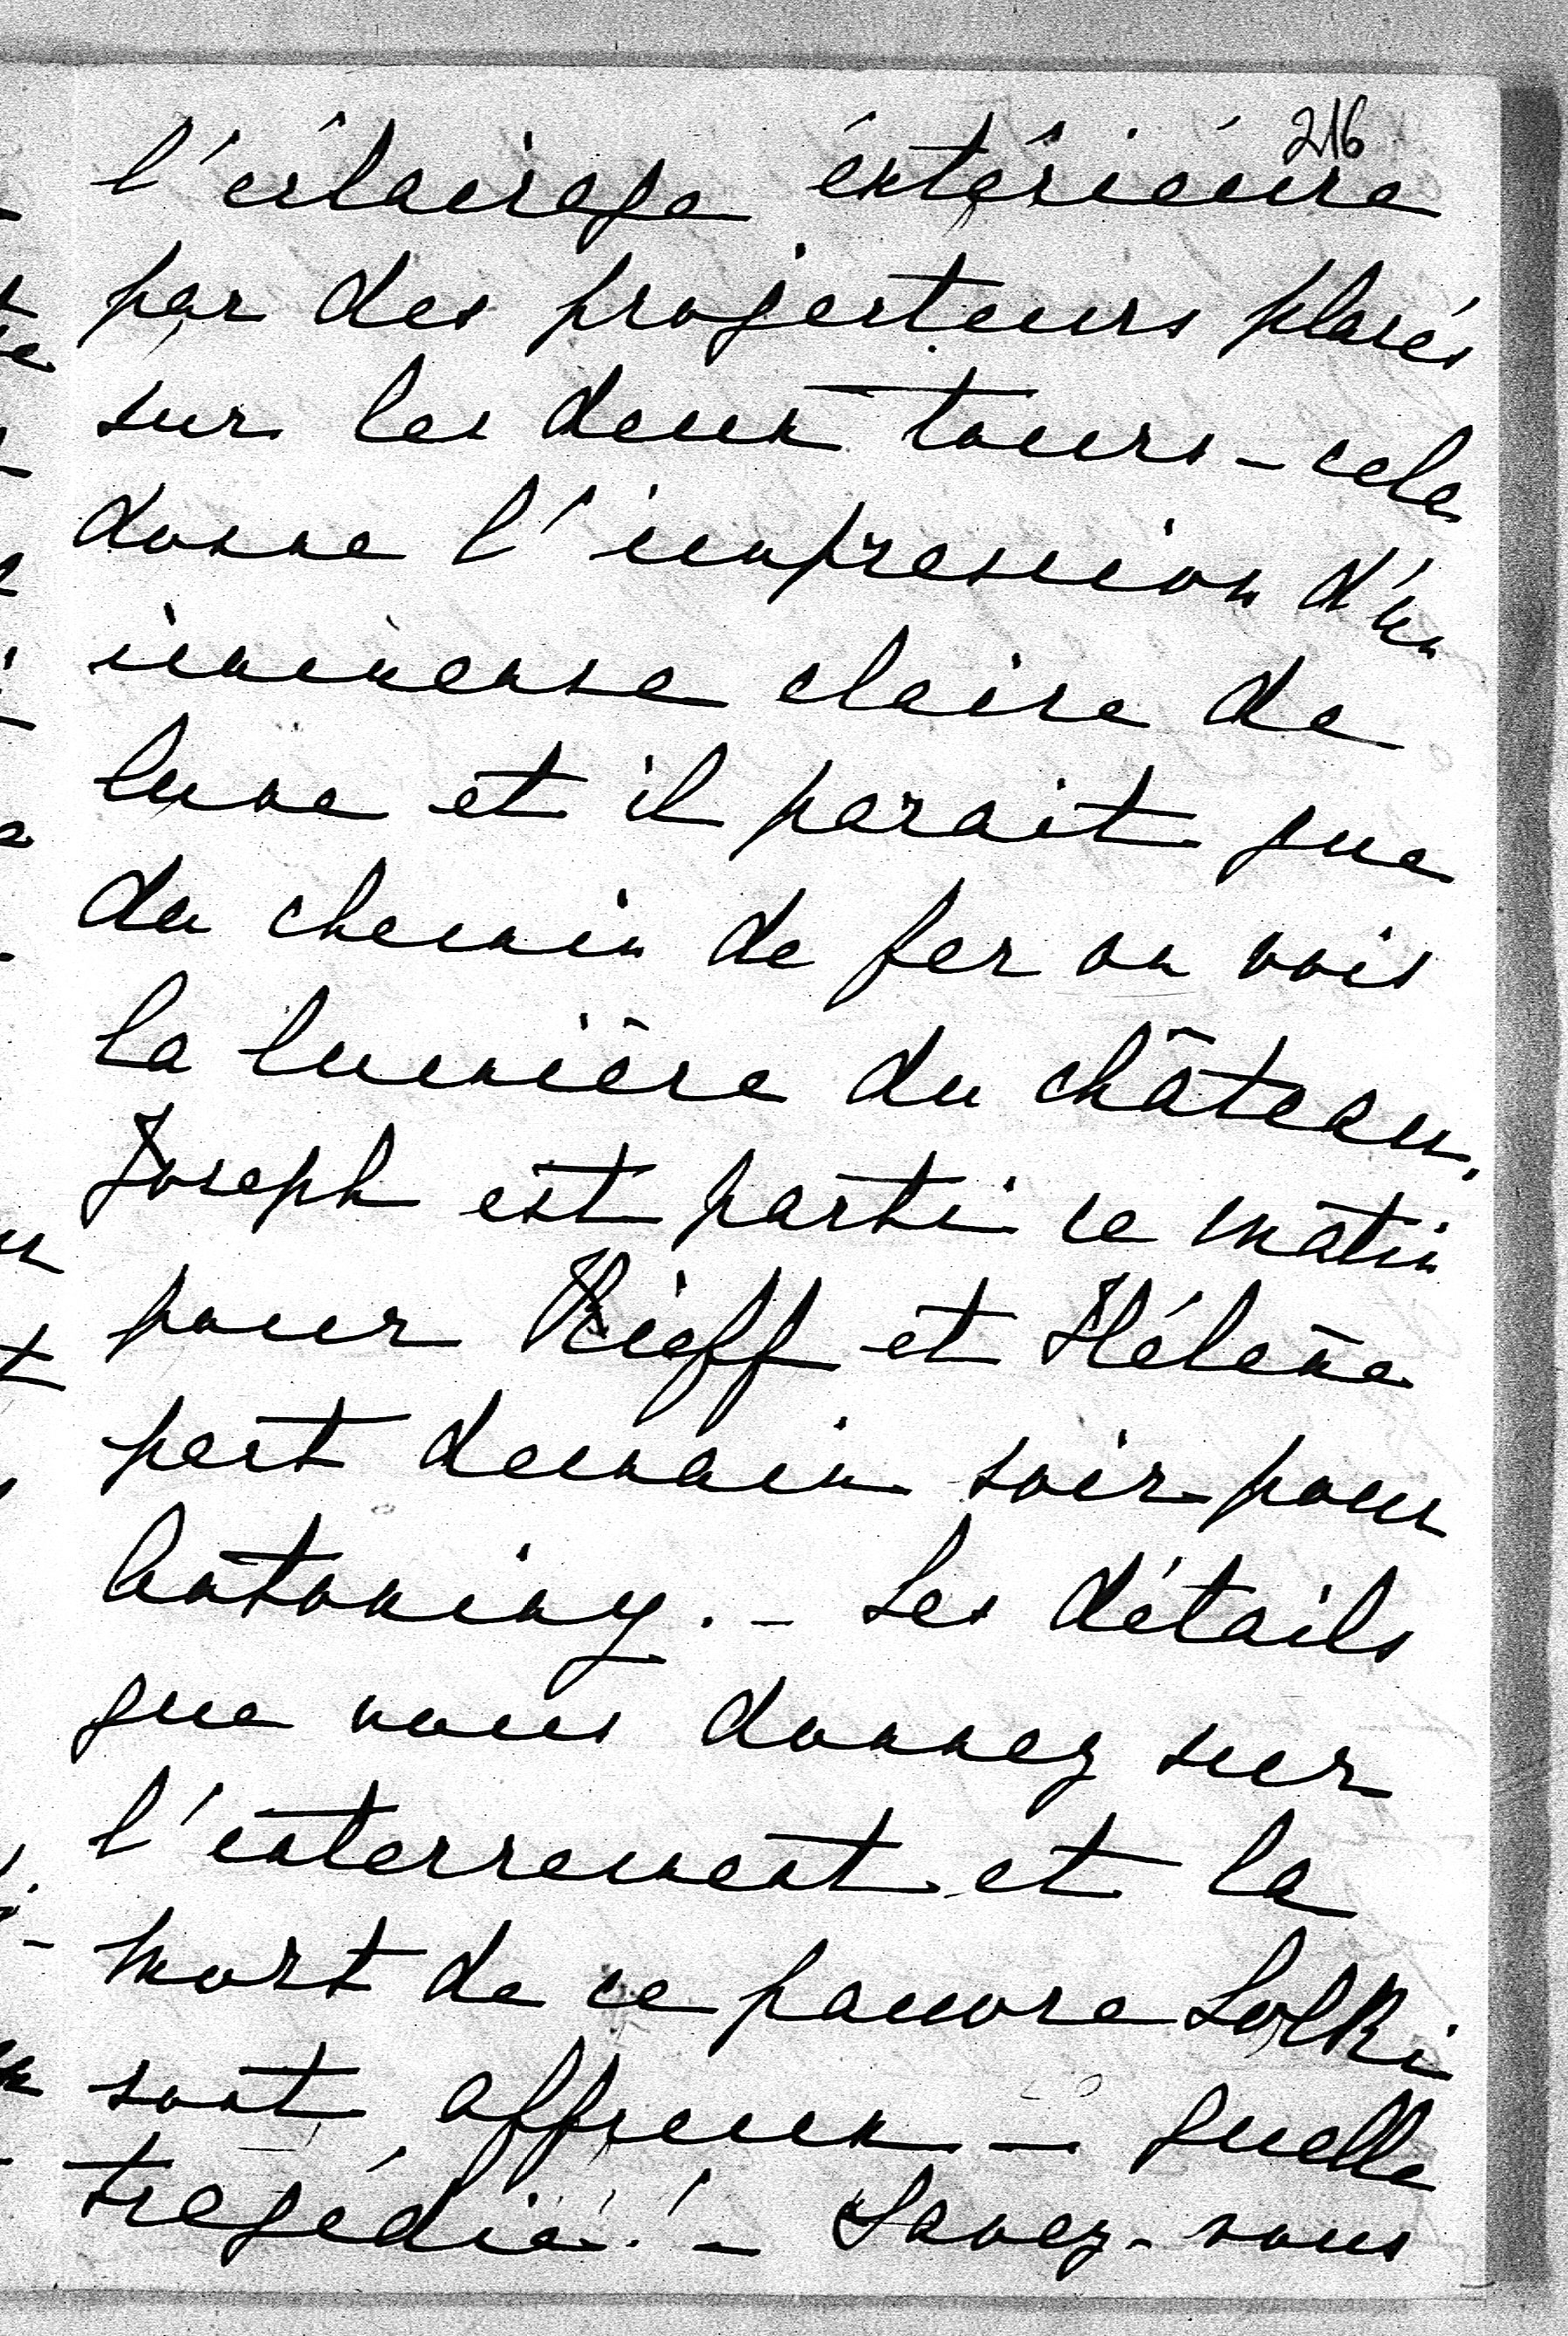 216
l'éclairage éxtérieure
par des projecteurs placés
sur les deux tours – cela
donne l'impression d'un
immense claire de
lune et il parait que
du chemin de fer on vois
la lumière du château.
Joseph est parti ce matin
pour Kieff et Hélène
part demain soir pour
Antoniny. – Les détails
que vous donnez sur
l'enterrement et la
mort de ce pauvre Lolki
sont affreux – quelle
tragédie! – Savez-vous